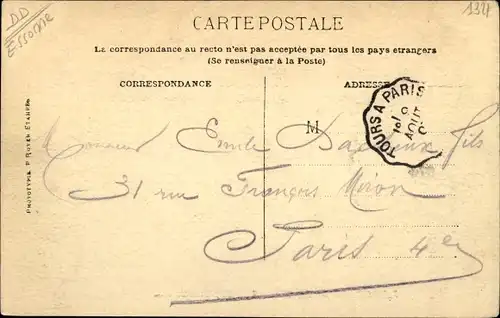 DD
Essonne
CARTE POSTALE
La correspondance au recto n'est pas acceptée par tous les pays étrangers
(Se renseigner à la Poste)
CORRESPONDANCE
ADRESSE
TOURS A PARIS
AOUT
M
Monsieur Emile fils
31 rue François Miron
Paris 4e
PHOTOTYPIE ROYER ÉTAMPES